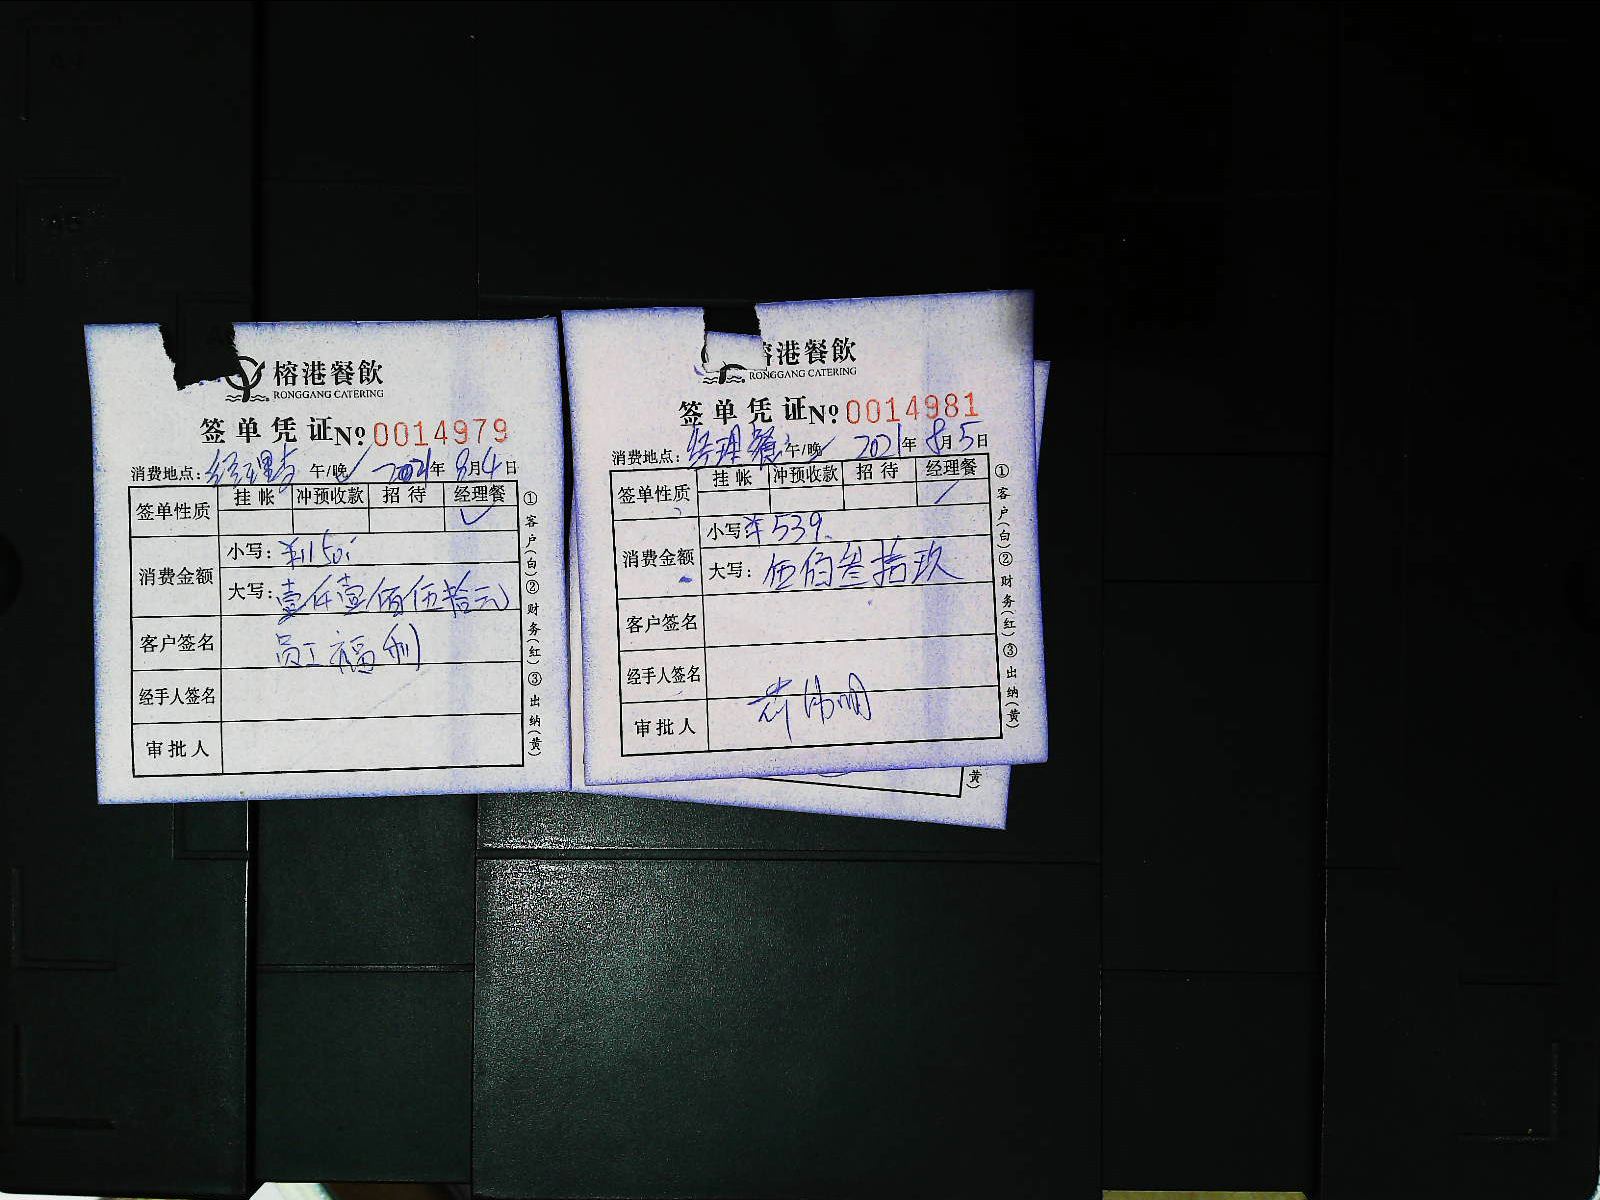 榕港餐飲
RONGGANG CATERING
签单凭证 No 0014979
消费地点: 经理 午/晚 2021年 8月4日
签单性质 挂帐 冲预收款 招待 经理餐
消费金额 小写: ¥1150
大写: 壹仟壹佰伍拾元
客户签名 员工福利
经手人签名
审批人
①客户(白)②财务(红)③出纳(黄)
榕港餐飲
RONGGANG CATERING
签单凭证 No 0014981
消费地点: 经理餐 午/晚 2021年 8月5日
签单性质 挂帐 冲预收款 招待 经理餐
消费金额 小写 ¥539
大写: 伍佰叁拾玖
客户签名
经手人签名
审批人
①客户(白)②财务(红)③出纳(黄)
黄)